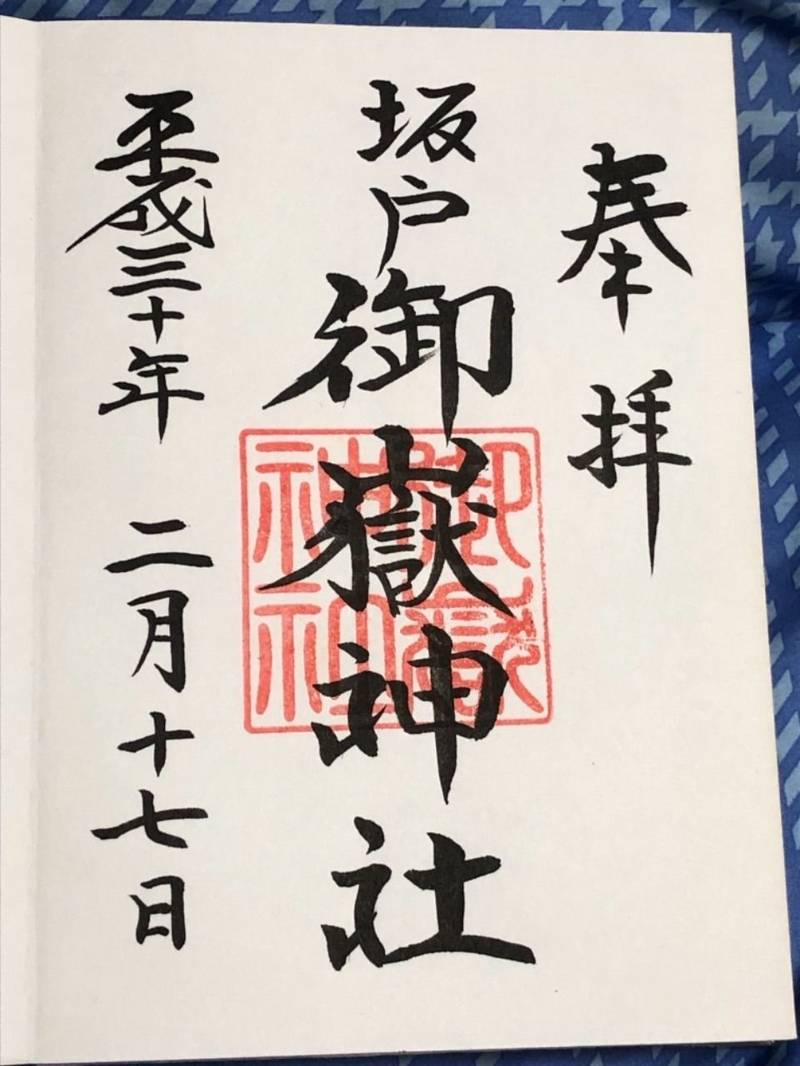 奉拝
坂戸御嶽神社
御嶽
神社
平成三十年 二月十七日